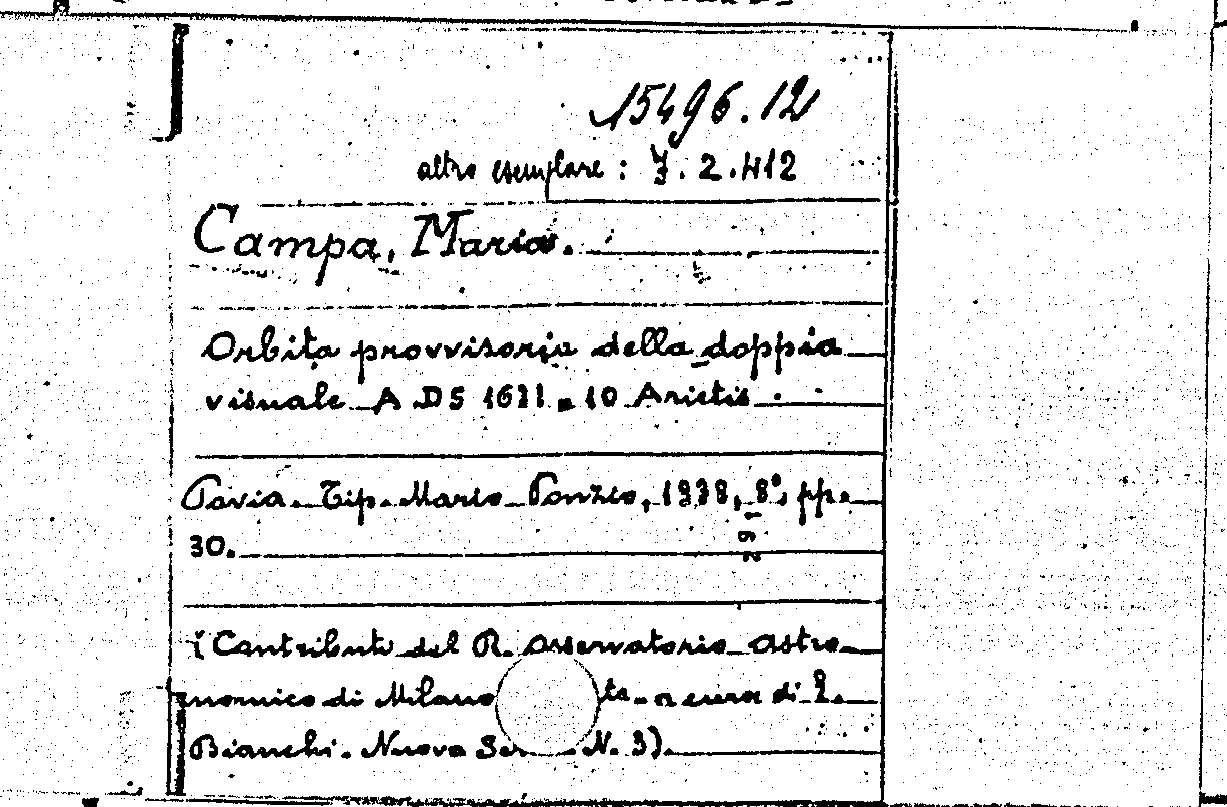 15496.12
altro esemplare : 7. 2. 412
Campa, Maria.
Orbita provvisoria della doppia
visuale ADS 1631 = 10 Arietis.
Pavia. Tip. Mario Ponzio, 1938, 8°, pp.
30.
(Contributi del R. Osservatorio Astro
nomico di Milano ta a cura di L.
Bianchi. Nuova Se N. 3).